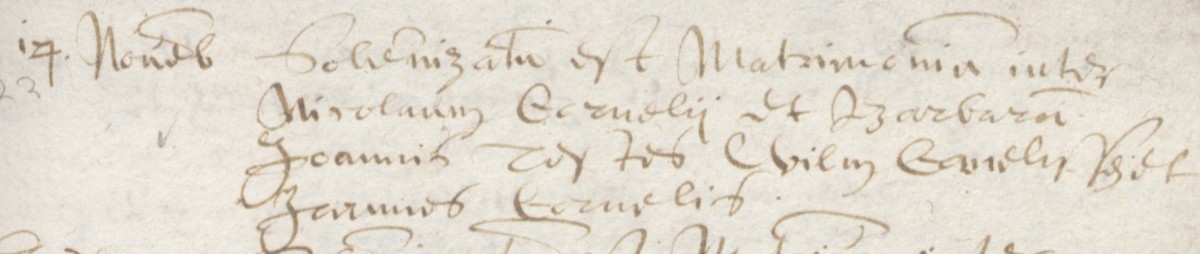 14. Novēb Solēnizatū est Matrimoniū inter
Nicolaum Cornelij et Barbarā
Joannis Testes Wilm Cornelis et
Jannes Cornelis